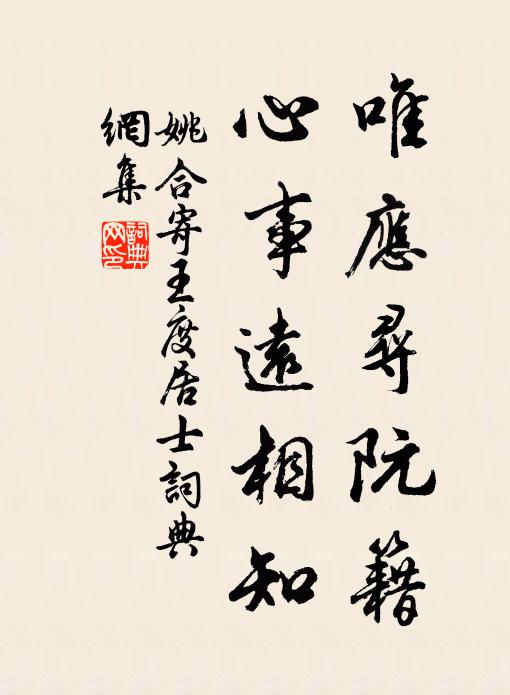 唯應尋阮籍
心事遠相知
姚合寄王度居士詞典
網集
詞典
网印